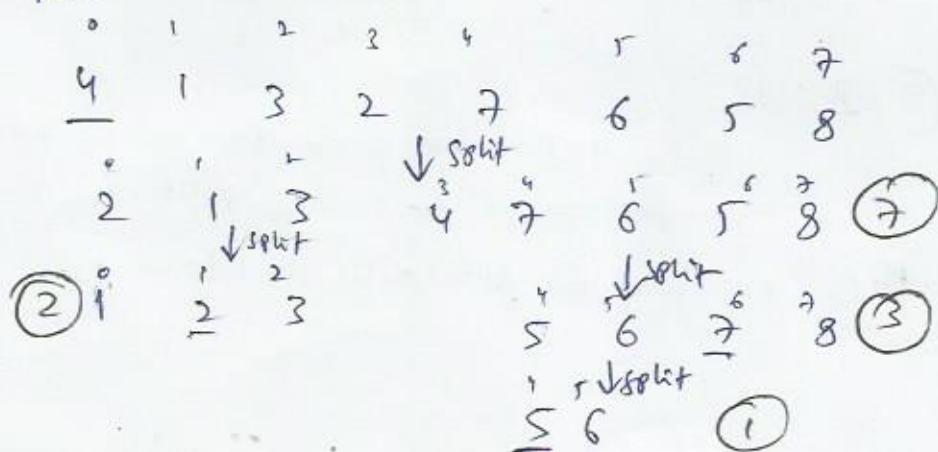 0 1 2 3 4 5 6 7
4 1 3 2 7 6 5 8
↓ split
0 1 2 3 4 5 6 7
2 1 3 4 7 6 5 8 7
↓ split ↓ split
0 1 2 4 5 6 7
2 1 2 3 5 6 7 8 3
4 5 ↓ split
5 6 1